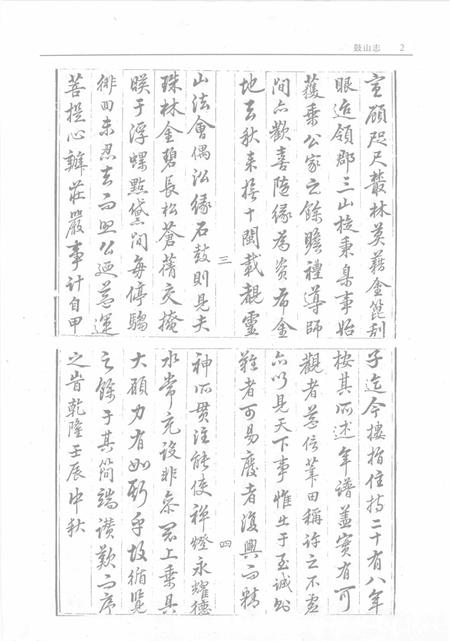 鼓山志 2
宦顧咫尺叢林莫藉金篦刮
眼迨領郡三山旋秉臬事始
獲乘公家之餘瞻禮導師
間亦歡喜隨緣為資布金
地去秋来撫十閩載覩靈
三
山法會偶緣石鼓則見夫
珠林金碧長松蒼蒨交掩
映于浮螺點黛間每停驂
徘徊未忍去而公廼運
菩提心辦莊嚴事計自甲
子迄今摟指住持二十有八年
按其所述年譜蓋實有可
觀者益信葦田稱許之不虛
亦以見天下事惟出于至誠則
難者可易廢者復興而精
四
神所貫注能使禪燈永耀德
水常充設非叅最上乘具
大願力有如斯乎故循覽
之餘于其簡端讚歎而序
之峕乾隆壬辰中秋